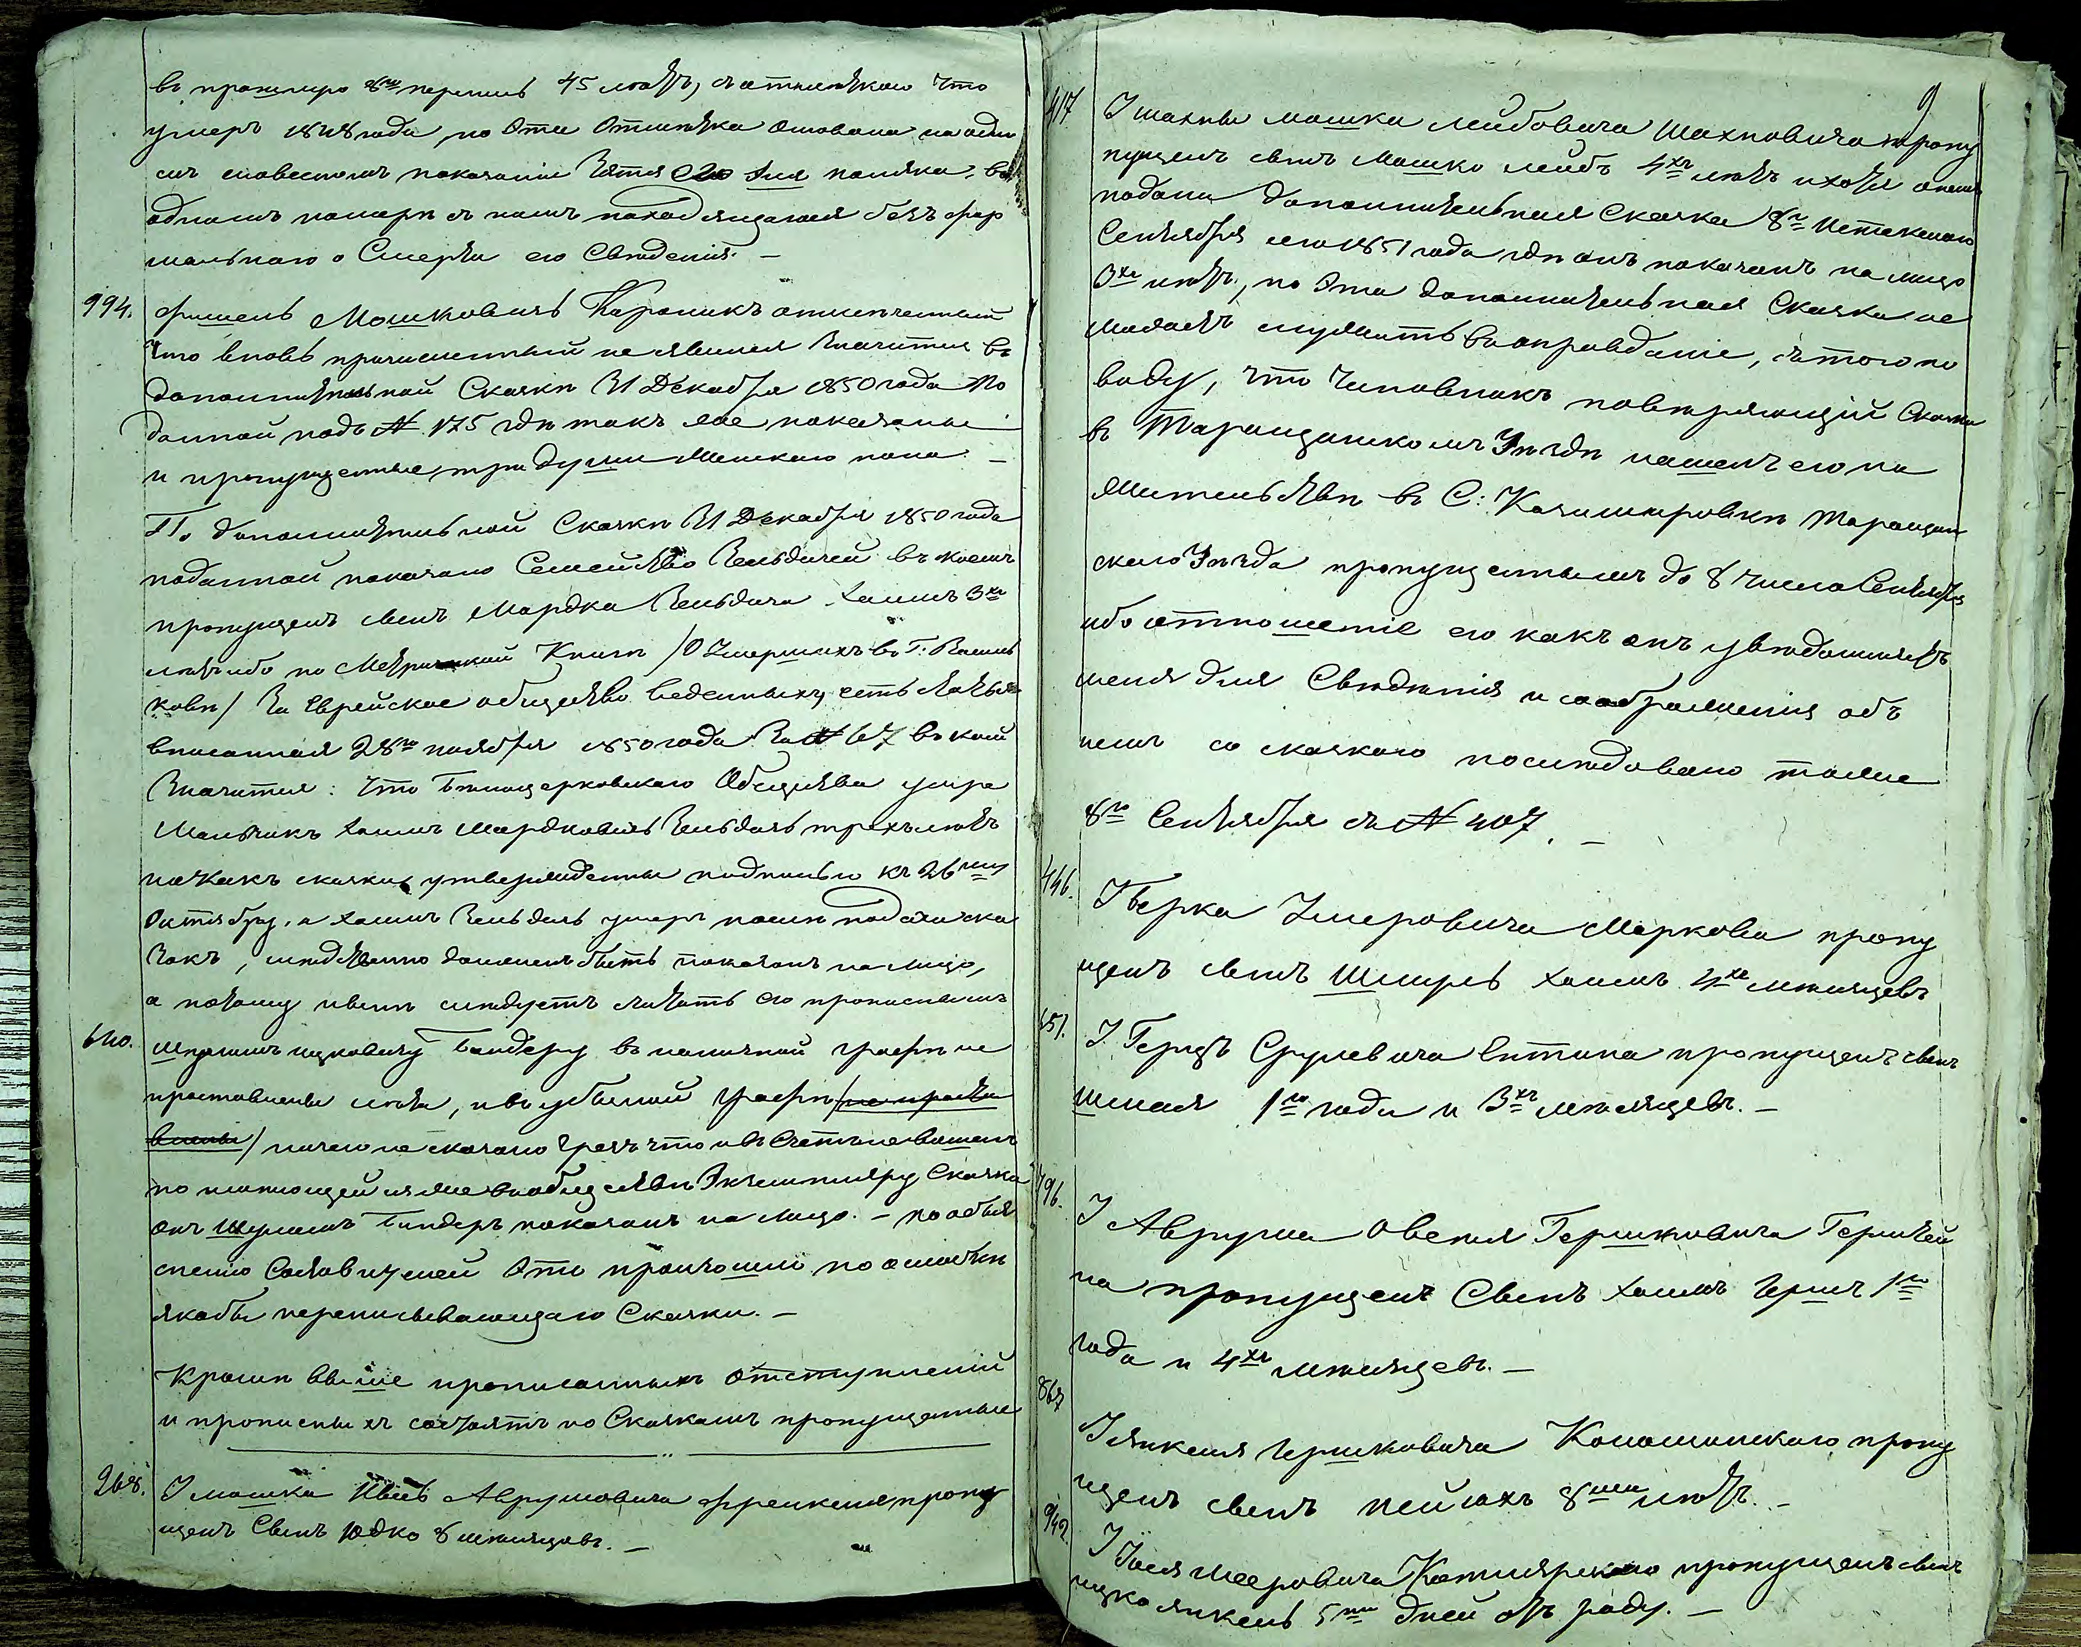 въ прошлую 8ю перепись 45 лѣтъ, съ отмѣткою что
умеръ 1848 года, но эта отмѣтка основана на одно
мъ словесномъ показаніи Зятя его
одномъ номерѣ съ нимъ находящагося безъ фор
мальнаго о Смерти его Свѣденія. —
994. Фишель Мошковичъ отмѣченный
что вновь причисленный не явился Значится въ
дополнительной Сказкѣ 31 Декабря 1850 года по
данной подъ № 175 гдѣ такъ же показаны
и пропущенные три души Женскаго пола —
По дополнительной Сказкѣ 31 Декабря 1850 года
поданной показано Семейство Зельдичей въ коемъ
пропущенъ сынъ Мордка Зельдича Хаимъ 3хъ
лѣтъ ибо по Метрической Книгѣ /О Умершихъ въ Г. Василь
ковѣ/ За Еврейское общество веденныхъ, есть Статья
вписанная 28го ноября 1850 года За № 67 въ коей
Значится: что Бѣлоцерковскаго Общества умре
Мальчикъ Хаимъ Мордковичъ Зельдичъ трехъ лѣтъ
но какъ сказки утверждены подписью къ 26му
Октябру, а Хаимъ Зельдичъ умеръ послѣ подачи ска
зокъ, слѣдственно долженъ быть показанъ на лицо,
а потому и вемъ слѣдуетъ считать его прописнымъ
640. Шулимъ Ицковичу Биндеру въ наличной графѣ не
проставлены лѣта, и въ убылой графѣ /не проста
влены/ ничего не сказано чрезъ что и въ Счетъ не вошелъ
по имѣющейся же въ обществѣ Экземпляру Сказки
онъ Шулимъ Биндеръ показанъ на лицо. — по объя
сненію Составителей Это произошло по ошибкѣ
якобы переписывающаго Сказки. —
Кромѣ выше прописанныхъ отступленій
и прописныхъ состоятъ по Сказкамъ пропущенные
268. У Мошка Ивеля Аврумовича Френкеля, пропу
щенъ Сынъ Юдко 8 мѣсяцовъ. —
9
417. У Шахны Мошка Лейбовича Шахновича пропу
пущенъ сынъ Мошко Лейбъ 4хъ лѣтъ и хотя о немъ
подана дополнительная Сказка 8го Истекшаго
Сентября сего 1851 года гдѣ онъ показанъ на лицо
3хъ лѣтъ, но Эта дополнительная Сказка не
можетъ служить въ оправданіе, съ того по
воду, что Чиновникъ повѣряющій Сказки
въ Таращанскомъ Уѣздѣ нашелъ его на
жительствѣ въ С: Казимировкѣ Таращан
скаго Уѣзда пропущеннымъ до 8 числа Сентября
ибо отношеніе его какъ онъ увѣдомляетъ
меня для Свѣдѣнія и соображенія объ
немъ со сказкою послѣдовало тоже
8го Сентября съ № 407. —
446. У Берка Умеровича Маркова пропу
щенъ сынъ Шмуль Хаимъ 4хъ мѣсяцевъ
451. У Герца Срулевича Ентина пропущенъ сынъ
Шмая 1го года и 3хъ мѣсяцевъ. —
496. У Аврума Овсея Гершковича Гершчей
на пропущенъ Сынъ Хаимъ Герш 1го
года и 4хъ мѣсяцевъ. —
867 У Янкеля Гершковича Коношинскаго пропу
щенъ сынъ Пейсахъ 8ми лѣтъ. —
942. У Иося Мееровича Котлярскаго пропущенъ сынъ
Ицко Янкель 5ти дней отъ роду. —